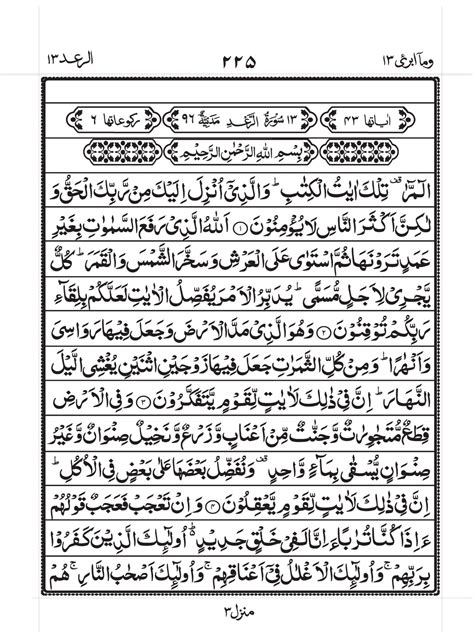 وماۤ ابرئ ۱۳ ۲۲۵ الرعد ۱۳
اٰیاتها ۴۳ ۱۳ سُوْرَةُ الرَّعْدِ مَدَنِیَّةٌ ۹۶ رکوعاتها ۶
بِسْمِ اللّٰهِ الرَّحْمٰنِ الرَّحِیْمِ
الٓمّٓرٰ ۫ تِلْكَ اٰیٰتُ الْكِتٰبِ ؕ وَالَّذِیْۤ اُنْزِلَ اِلَیْكَ مِنْ رَّبِّكَ الْحَقُّ وَ
لٰكِنَّ اَكْثَرَ النَّاسِ لَا یُؤْمِنُوْنَ ۝۱ اَللّٰهُ الَّذِیْ رَفَعَ السَّمٰوٰتِ بِغَیْرِ
عَمَدٍ تَرَوْنَهَا ثُمَّ اسْتَوٰی عَلَی الْعَرْشِ وَسَخَّرَ الشَّمْسَ وَالْقَمَرَ ؕ كُلٌّ
یَّجْرِیْ لِاَجَلٍ مُّسَمًّی ؕ یُدَبِّرُ الْاَمْرَ یُفَصِّلُ الْاٰیٰتِ لَعَلَّكُمْ بِلِقَآءِ
رَبِّكُمْ تُوْقِنُوْنَ ۝۲ وَهُوَ الَّذِیْ مَدَّ الْاَرْضَ وَجَعَلَ فِیْهَا رَوَاسِیَ
وَاَنْهٰرًا ؕ وَمِنْ كُلِّ الثَّمَرٰتِ جَعَلَ فِیْهَا زَوْجَیْنِ اثْنَیْنِ یُغْشِی الَّیْلَ
النَّهَارَ ؕ اِنَّ فِیْ ذٰلِكَ لَاٰیٰتٍ لِّقَوْمٍ یَّتَفَكَّرُوْنَ ۝۳ وَفِی الْاَرْضِ
قِطَعٌ مُّتَجٰوِرٰتٌ وَّجَنّٰتٌ مِّنْ اَعْنَابٍ وَّزَرْعٌ وَّنَخِیْلٌ صِنْوَانٌ وَّغَیْرُ
صِنْوَانٍ یُّسْقٰی بِمَآءٍ وَّاحِدٍ ۫ وَنُفَضِّلُ بَعْضَهَا عَلٰی بَعْضٍ فِی الْاُكُلِ ؕ
اِنَّ فِیْ ذٰلِكَ لَاٰیٰتٍ لِّقَوْمٍ یَّعْقِلُوْنَ ۝۴ وَاِنْ تَعْجَبْ فَعَجَبٌ قَوْلُهُمْ
ءَاِذَا كُنَّا تُرٰبًا ءَاِنَّا لَفِیْ خَلْقٍ جَدِیْدٍ ؕ اُولٰٓئِكَ الَّذِیْنَ كَفَرُوْا
بِرَبِّهِمْ ۚ وَاُولٰٓئِكَ الْاَغْلٰلُ فِیْۤ اَعْنَاقِهِمْ ۚ وَاُولٰٓئِكَ اَصْحٰبُ النَّارِ ۚ هُمْ
منزل ۳